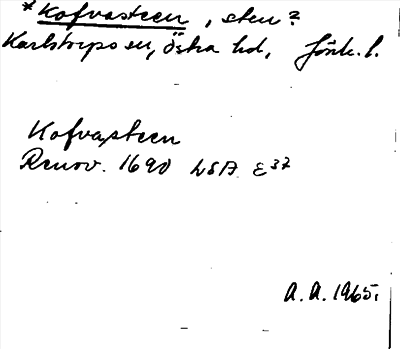 *Kofvasteen, sten?
Karlstorps sn, Östra hd, Jönk. l.
Kofvasteen
Renov. 1690 LSA E37
A. A. 1965.